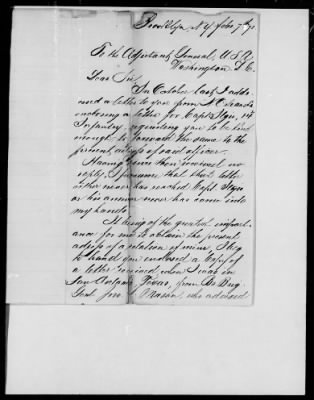 Brooklyn, N.Y. Febr. 7th
To the Adjutant General, U.S.A.
Washington D.C.
Dear Sir,
In October last I addressed
a letter to you from
enclosing a letter for Capt. 14
Infantry, requesting you to be kind
enough to forward the same to the
present address of said officer.
Having since then received no
reply, I presume that that letter
either never has reached Capt.
or his answer never has come into
my hands.
It being of the greatest import-
ance for me to obtain the present
address of a relation of mine, I beg
to hand you enclosed a copy of
a letter received when I was in
San Antonio, Texas, from
Genl. who advised